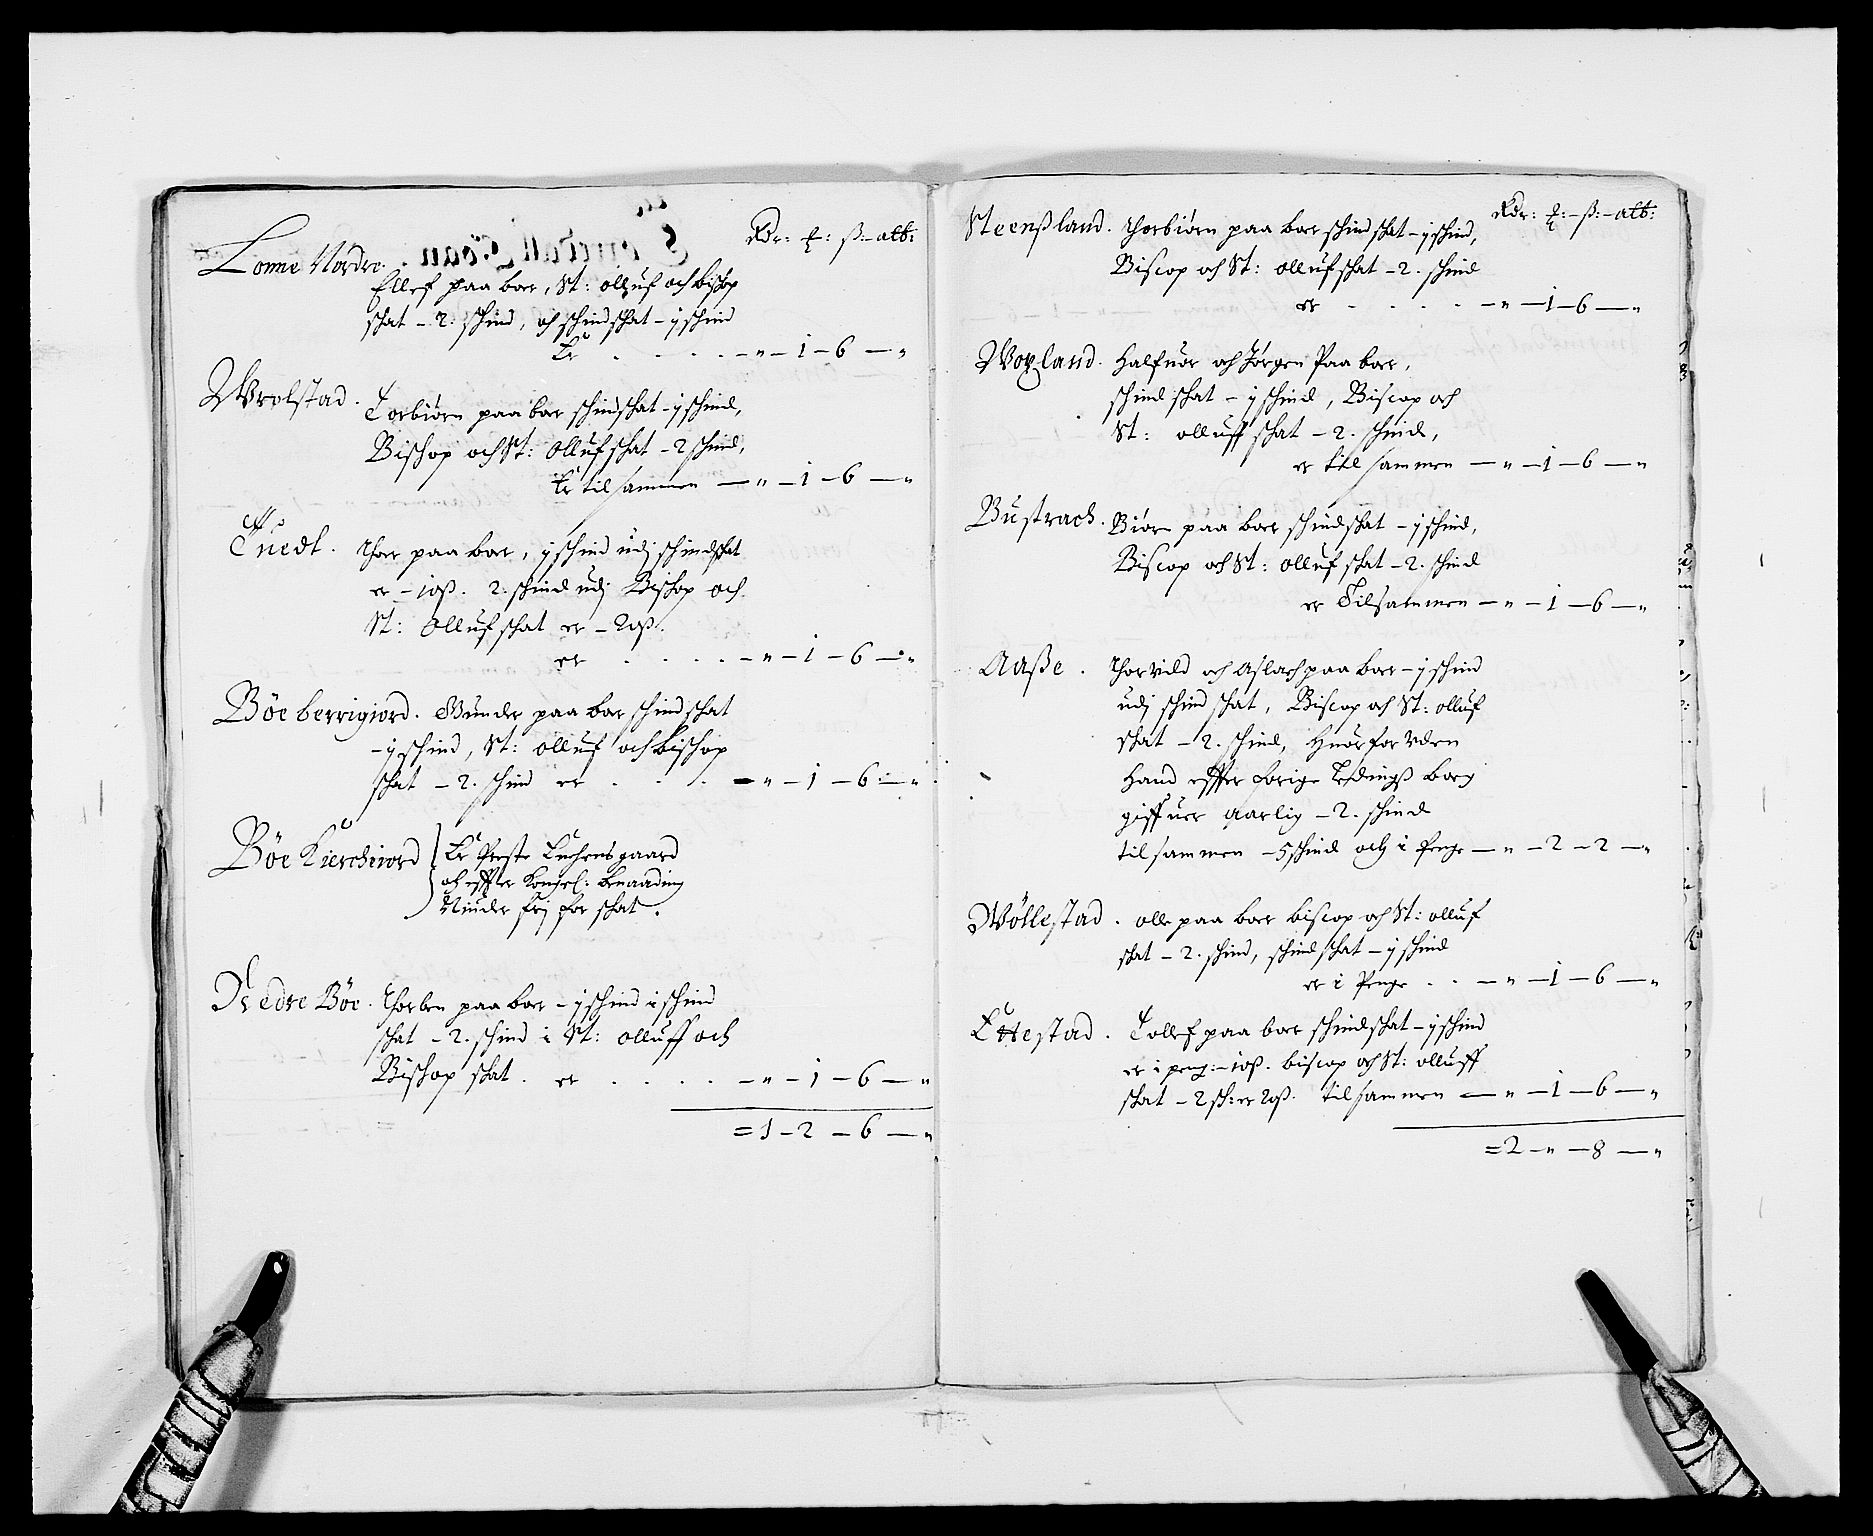 Rdr: ₰: ß: alb:
Lonne Nordre.
Ellef paa boer, St: olluf och bishop
schat – 2. schind, och schindschat – j schind
Er . . . . – „ – 1 – 6 – „
Wrolstad. Torbiørn paa boer schindschat – j schind,
Bischop och St: Olluf schat – 2 schind,
Er tilsammen – „ – 1 – 6 – „
Tuedt. Thor paa boer, j schind udj schindschat
er – 10ß. 2. schind udj Bischop och
St: Olluf schat er – 20ß.
er . . . . – „ – 1 – 6 – „
Böe berrigiord. Gunder paa boer schindschat
– j schind, St: olluf och bischop
schat – 2. schind er . . . – „ – 1 – 6 – „
Böe Kierchiord Er Preste Enchens gaard
och effter Kongel: benaading
Niuder frj for schat.
Nedre Böe. Thorben paa boer – j schind i schind
schat – 2. schind i St: olluff och
Bischop schat. er . . . . – „ – 1 – 6 – „
= 1 – 2 – 6 – „
Rdr: ₰: – ß: – alb:
Steensland. Thorbiörn paa boer schindschat – j schind,
Biscop och St: olluf schat – 2. schind
er . . . . – „ – 1 – 6 – „
Woxland. Halfuor och Jörgen Paa boer,
schind schat – j schind, Biscop och
St: olluff schat – 2. schind,
er til sammen – „ – 1 – 6 – „
Bustrach. Biörn paa boer schindschat – j schind,
Biscop och St: olluf schat – 2. schind
er Tilsammen – „ – 1 – 6 – „
Aaße. Thorvild och Aslach paa boer – j schind
udj schind schat, Biscop och St: olluf
schat – 2. schind, Huorforuden
Hand effter forige Ledings borg
giffuer aarlig – 2. schind
tilsammen – 5 schind och i Penge – „ – 2 – 2 – „
Wöllestad. olle paa boer biscop och St: olluf
schat – 2. schind, schindschat – j schind
er i Penge . . – „ – 1 – 6 – „
Ettestad. Tollef paa boer schindschat – j schind
er i peng: – 10ß. biscop och St: olluff
schat – 2 sch: er 20ß. tilsammen – „ – 1 – 6 – „
= 2 – „ – 8 – „